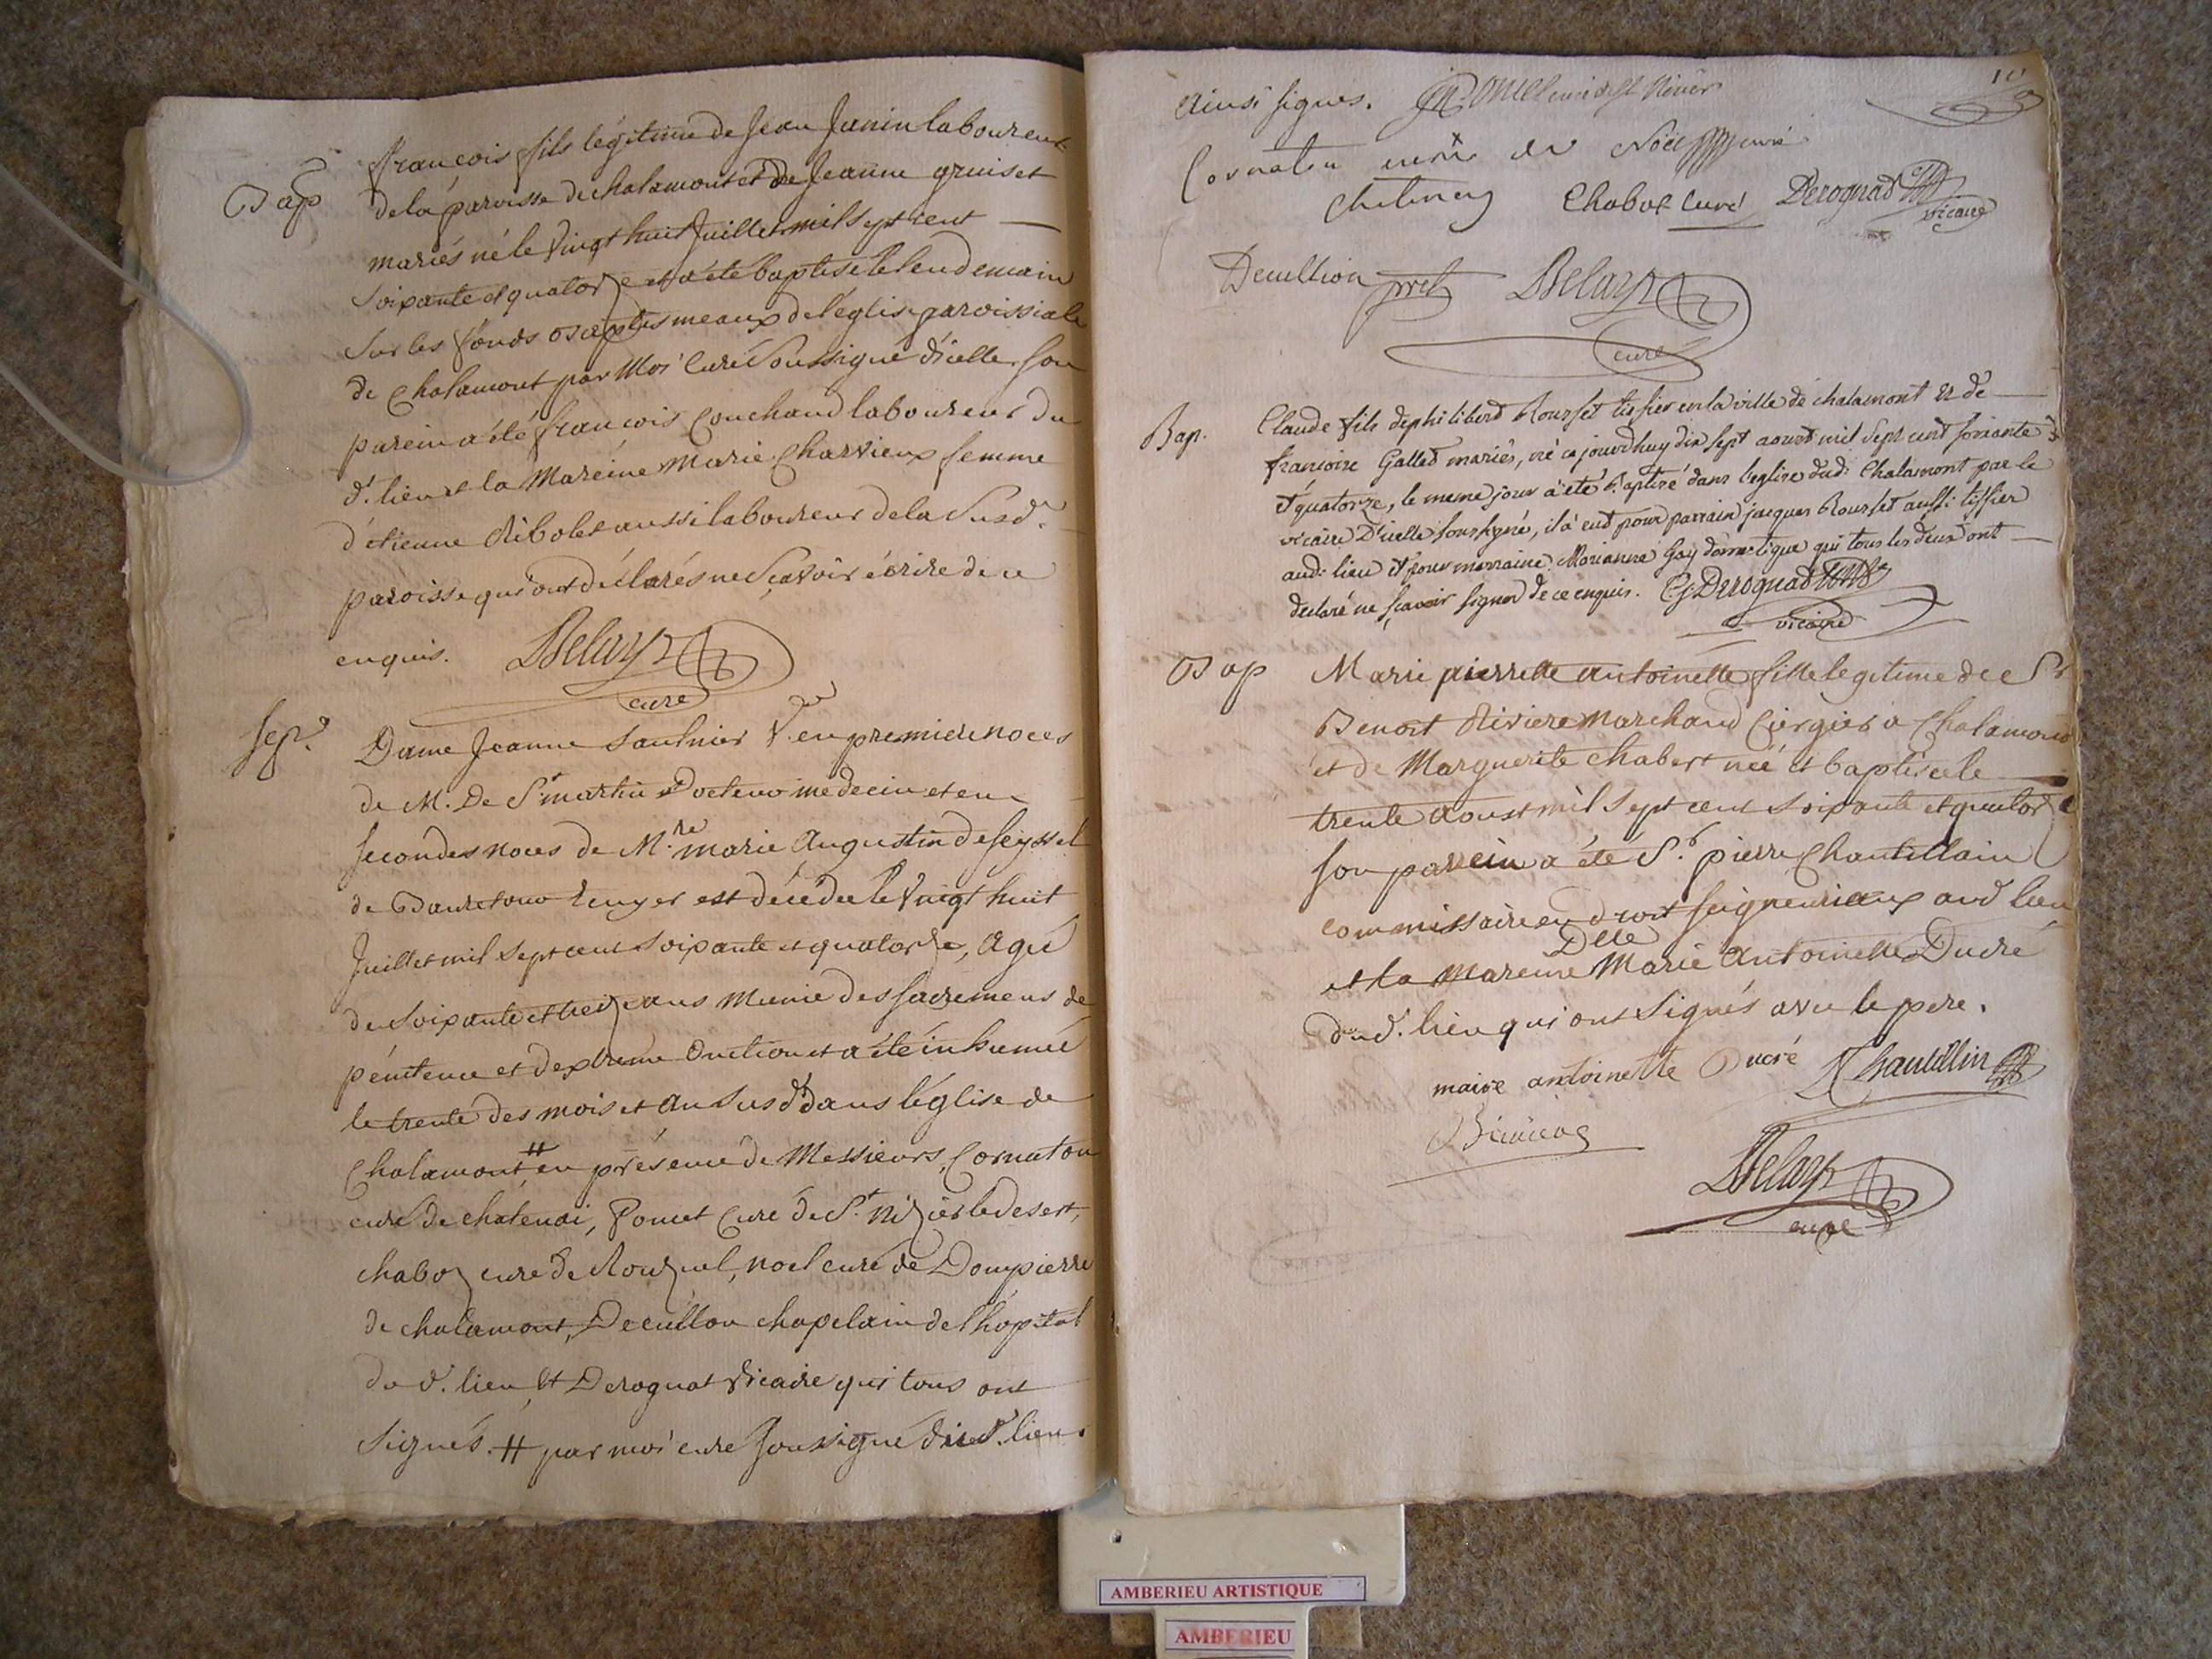 Bap
françois fils légitime de Jean Janin laboureur
de la paroisse de chalamont et de Jeanne gruiset
mariés né le vingt huit Juillet mil sept cent
soixante et quatorze et a été baptisé le lendemain
sur les fonds baptismeaux de l'église paroissiale
de Chalamont par Moi Curé Soussigné d'icelle son
parein a été françois Couchaud laboureur du
d. lieu et la Mareine Marie Charvieux femme
d'étienne Ribolet aussi laboureur de la Susd.
paroisse qui ont déclarés ne Sçavoir écrire de ce
enquis. Delays
curé
Sep.
Dame Jeanne Saulnier Ve. en premiere noces
de M. De St. martin Docteur medecin et en
secondes noces de M.re marie Augustin de seyssel
de est décédée le vingt huit
Juillet mil sept cent soixante et quatorze, agée
de soixante et treize ans munie des sacremens de
pénitence et d'extreme onction et a été inhumée
le trente des mois et an susd. dans l'église de
Chalamont # en présence de Messieurs, Cornaton
curé de chatenai, Poncet Curé de St. nizier le desert,
chaboz curé de Ronzuel, noel curé de Dompierre
de chalamont, Decullion chapelain de l'hopital
du d. lieu et Derognat vicaire qui tous ont
Signés. # par moi curé soussigné du d. lieu.
10
Ainsi signés.
Cornaton curé de Noel curé
Chatenay Chabot curé Derognat
vicaire
Decullion pret Delays
curé
Bap.
Claude fils de philibert Rousset tissier en la ville de chalamont et de
françoise Gallet mariés, né ce jourdhuy dix sept aoust mil sept cent soixante
et quatorze, le meme jour a été Baptisé dans l'eglise dud. Chalamont par le
vicaire D'icelle soussigné, il a eut pour parrain jacques Rousset aussi tissier
aud. lieu et pour marraine Marianne Gay domestique qui tous les deux ont
declaré ne sçavoir signer de ce enquis. Derognat
vicaire
Bap
Marie pierrette antoinette fille legitime de Sr
Benoit Riviere Marchand Ciergier a Chalamont
et de Marguerite Chabert née et baptisée le
trente aoust mil sept cent soixante et quatorze
son parein a été S.r pierre Chantellain
commissaire en droit seigneuriaux aud lieu
Dlle
et la Mareine Marie Antoinette Ducré
dud. lieu qui ont signés avec le pere.
maire antoinette Ducré
Delays
curé
AMBERIEU ARTISTIQUE
AMBERIEU